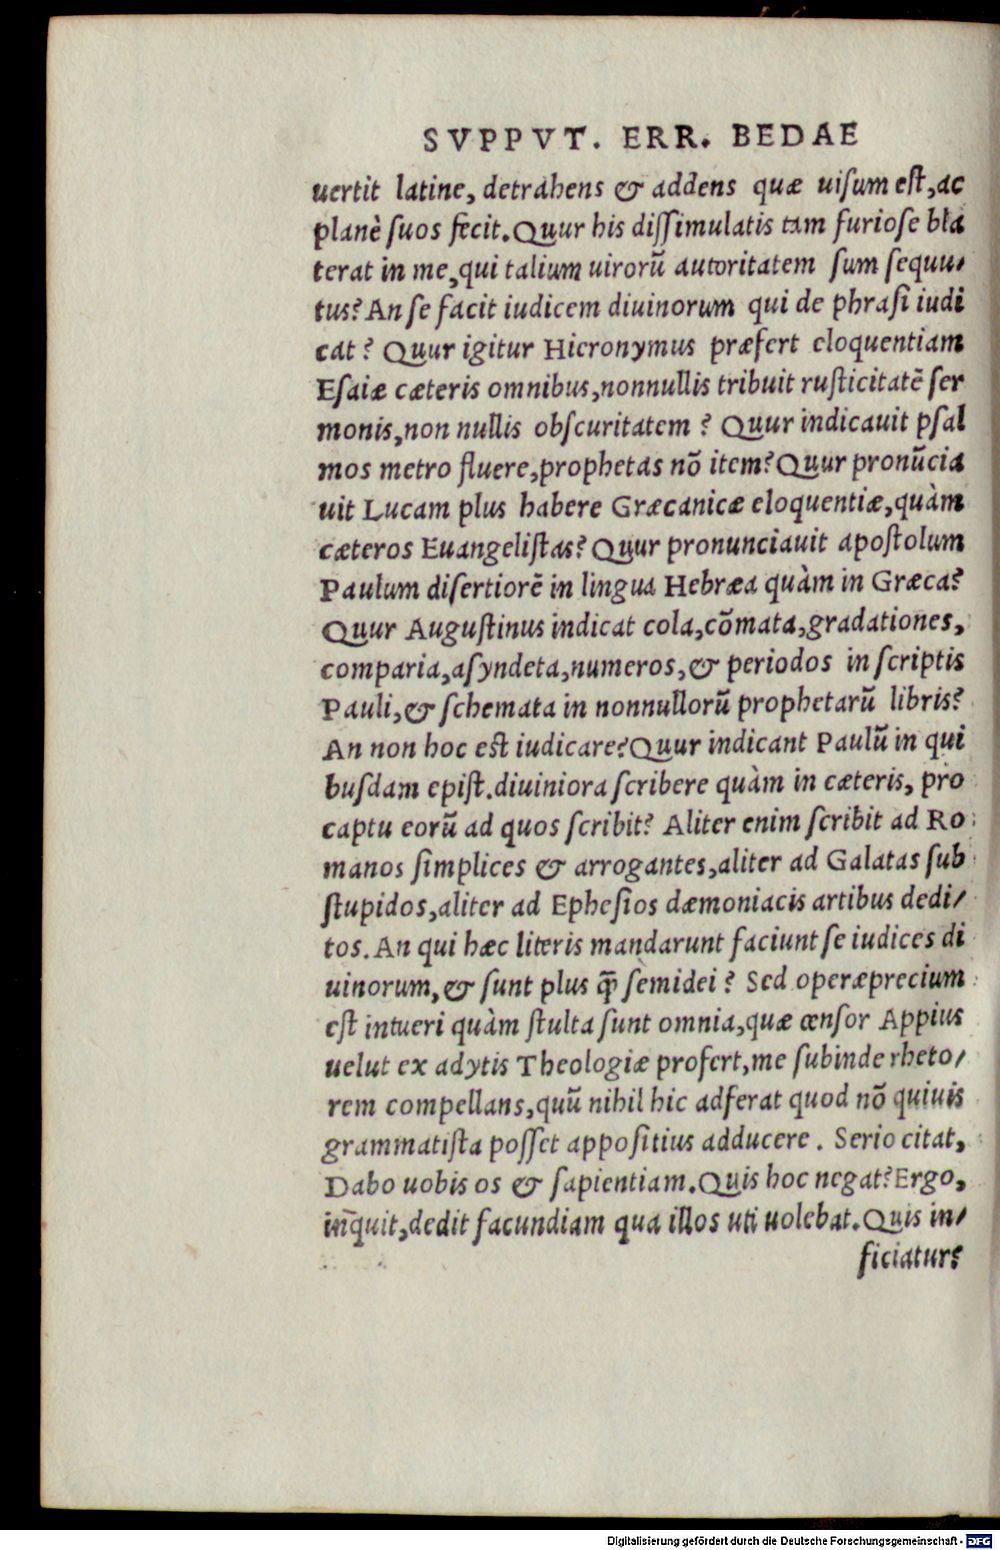 SVPPVT. ERR. BEDAE
uertit latine, detrahens & addens quæ uiſum eſt, ac
planè ſuos fecit. Quur his diſſimulatis tam furioſe bla
terat in me, qui talium uirorū autoritatem ſum ſequu/
tus? An ſe facit iudicem diuinorum qui de phraſi iudi
cat? Quur igitur Hieronymus præfert eloquentiam
Eſaiæ cæteris omnibus, nonnullis tribuit ruſticitatē ſer
monis, non nullis obſcuritatem? Quur indicauit pſal
mos metro fluere, prophetas nō item? Quur pronūcia
uit Lucam plus habere Græcanicæ eloquentiæ, quàm
cæteros Euangeliſtas? Quur pronunciauit apoſtolum
Paulum diſertiorē in lingua Hebræa quàm in Græca?
Quur Auguſtinus indicat cola, cōmata, gradationes,
comparia, aſyndeta, numeros, & periodos in ſcriptis
Pauli, & ſchemata in nonnullorū prophetarū libris?
An non hoc eſt iudicare? Quur indicant Paulū in qui
buſdam epiſt. diuiniora ſcribere quàm in cæteris, pro
captu eorū ad quos ſcribit? Aliter enim ſcribit ad Ro
manos ſimplices & arrogantes, aliter ad Galatas ſub
ſtupidos, aliter ad Epheſios dæmoniacis artibus dedi/
tos. An qui hæc literis mandarunt faciunt ſe iudices di
uinorum, & ſunt plus q̃ ſemidei? Sed operæprecium
eſt intueri quàm ſtulta ſunt omnia, quæ cenſor Appius
uelut ex adytis Theologiæ profert, me ſubinde rheto/
rem compellans, quū nihil hic adferat quod nō quiuis
grammatiſta poſſet appoſitius adducere. Serio citat,
Dabo uobis os & ſapientiam. Quis hoc negat? Ergo,
inq̃uit, dedit facundiam qua illos uti uolebat. Quis in/
ficiatur?
Digitalisierung gefördert durch die Deutsche Forschungsgemeinschaft - DFG